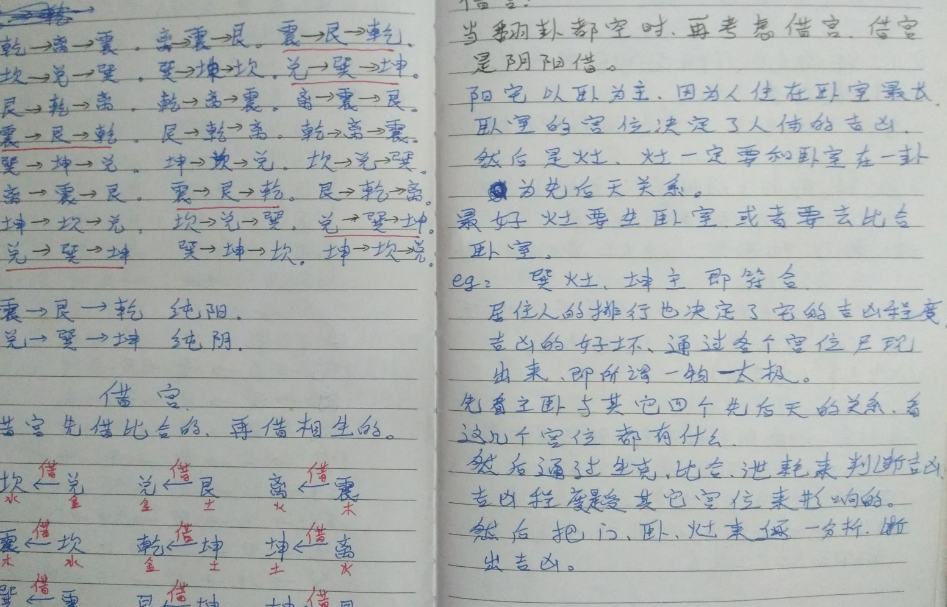 乾→离→震. 离→震→艮. 震→艮→乾.
坎→兑→巽. 巽→坤→坎. 兑→巽→坤.
艮→乾→离. 乾→离→震. 离→震→艮.
震→艮→乾. 艮→乾→离. 乾→离→震.
巽→坤→兑. 坤→坎→兑. 坎→兑→巽.
离→震→艮 震→艮→乾. 艮→乾→离.
坤→坎→兑. 坎→兑→巽. 兑→巽→坤.
兑→巽→坤 巽→坤→坎. 坤→坎→兑.
震→艮→乾 纯阳.
兑→巽→坤 纯阴.
借宫
借宫先借比合的, 再借相生的。
坎←借兑 兑←借艮 离←借震
水 金 金 土 火 木
震←借坎 乾←借坤 坤←借离
木 水 金 土 土 火
巽←借震 艮←借坤 坤←借艮
借宫:
当翻卦都空时, 再考虑借宫. 借宫
是阴阳借。
阳宅以卧为主. 因为人住在卧室最长.
卧室的宫位决定了人体的吉凶.
然后是灶. 灶一定要和卧室在一卦
为先后天关系。
最好灶要生卧室. 或者要去比合
卧室.
eg: 巽灶. 坤主 即符合.
居住人的排行也决定了宅的吉凶程度
吉凶的好坏、通过各个宫位
出来、即所谓一物一太极。
先看主卧与其它四个先后天的关系. 看
这几个宫位都有什么.
然后通过生克, 比合, 泄耗来判断吉凶
吉凶程度是受其它宫位来影响的。
然后把门、卧、灶来逐一分析. 断
出吉凶。